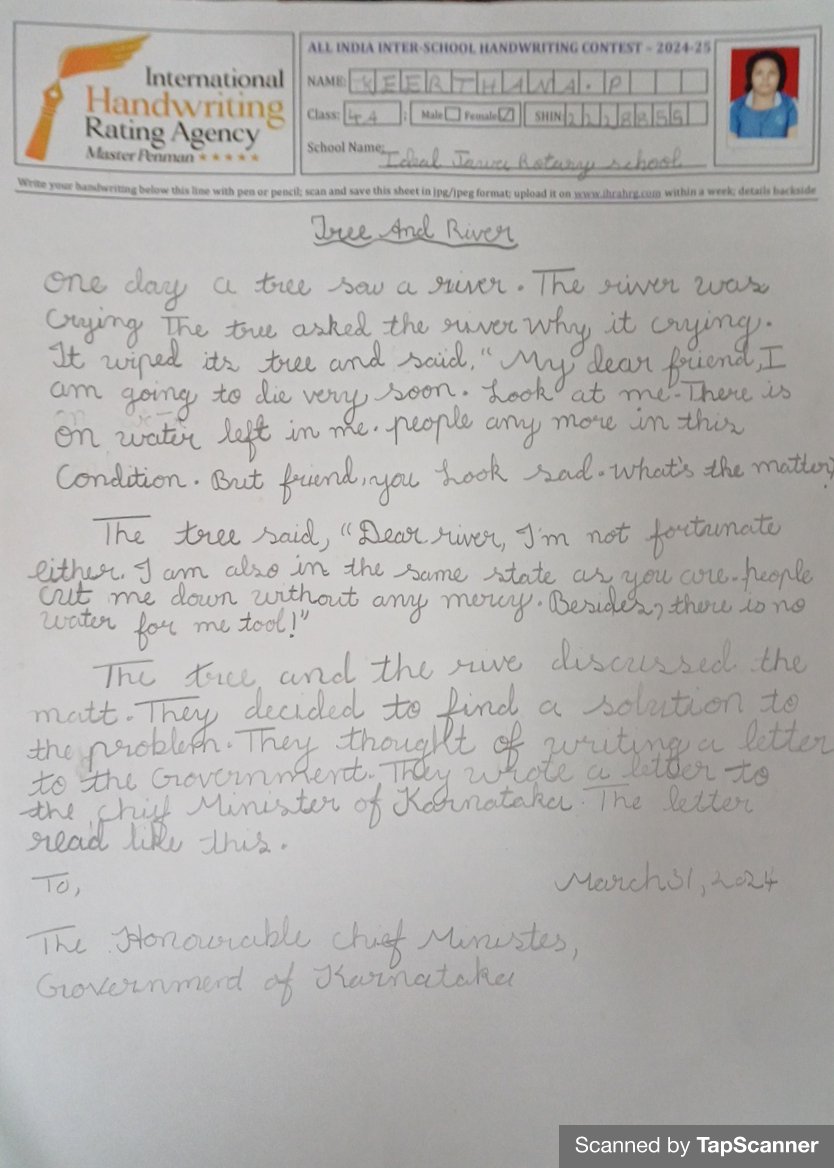 ALL INDIA INTER-SCHOOL HANDWRITING CONTEST - 2024-25
International
Handwriting
Rating Agency
Master Penman ★★★★★
NAME: KEERTHANA.P
Class: 4A : Male Female ✓ SHIN
School Name: Ideal Jawa Rotary school
Write your handwriting below this line with pen or pencil; scan and save this sheet in jpg/jpeg format; upload it on www.ihrahrg.com within a week; details backside
Tree And River
One day a tree saw a river. The river was
Crying The tree asked the river why it crying.
It wiped its tree and said, "My dear friend, I
am going to die very soon. Look at me. There is
on water left in me. people any more in this
Condition. But friend, you Look sad. What's the matter?
The tree said, "Dear river, I'm not fortunate
either. I am also in the same state as you are. people
cut me down without any mercy. Besides, there is no
water for me tool!"
The tree and the rive discussed the
matt. They decided to find a solution to
the problem. They thought of writing a letter
to the Government. They wrote a letter to
the chief Minister of Karnataka. The letter
read like this.
To,
March 31, 2024
The Honourable chief Ministes,
Governmend of Karnataka
Scanned by TapScanner